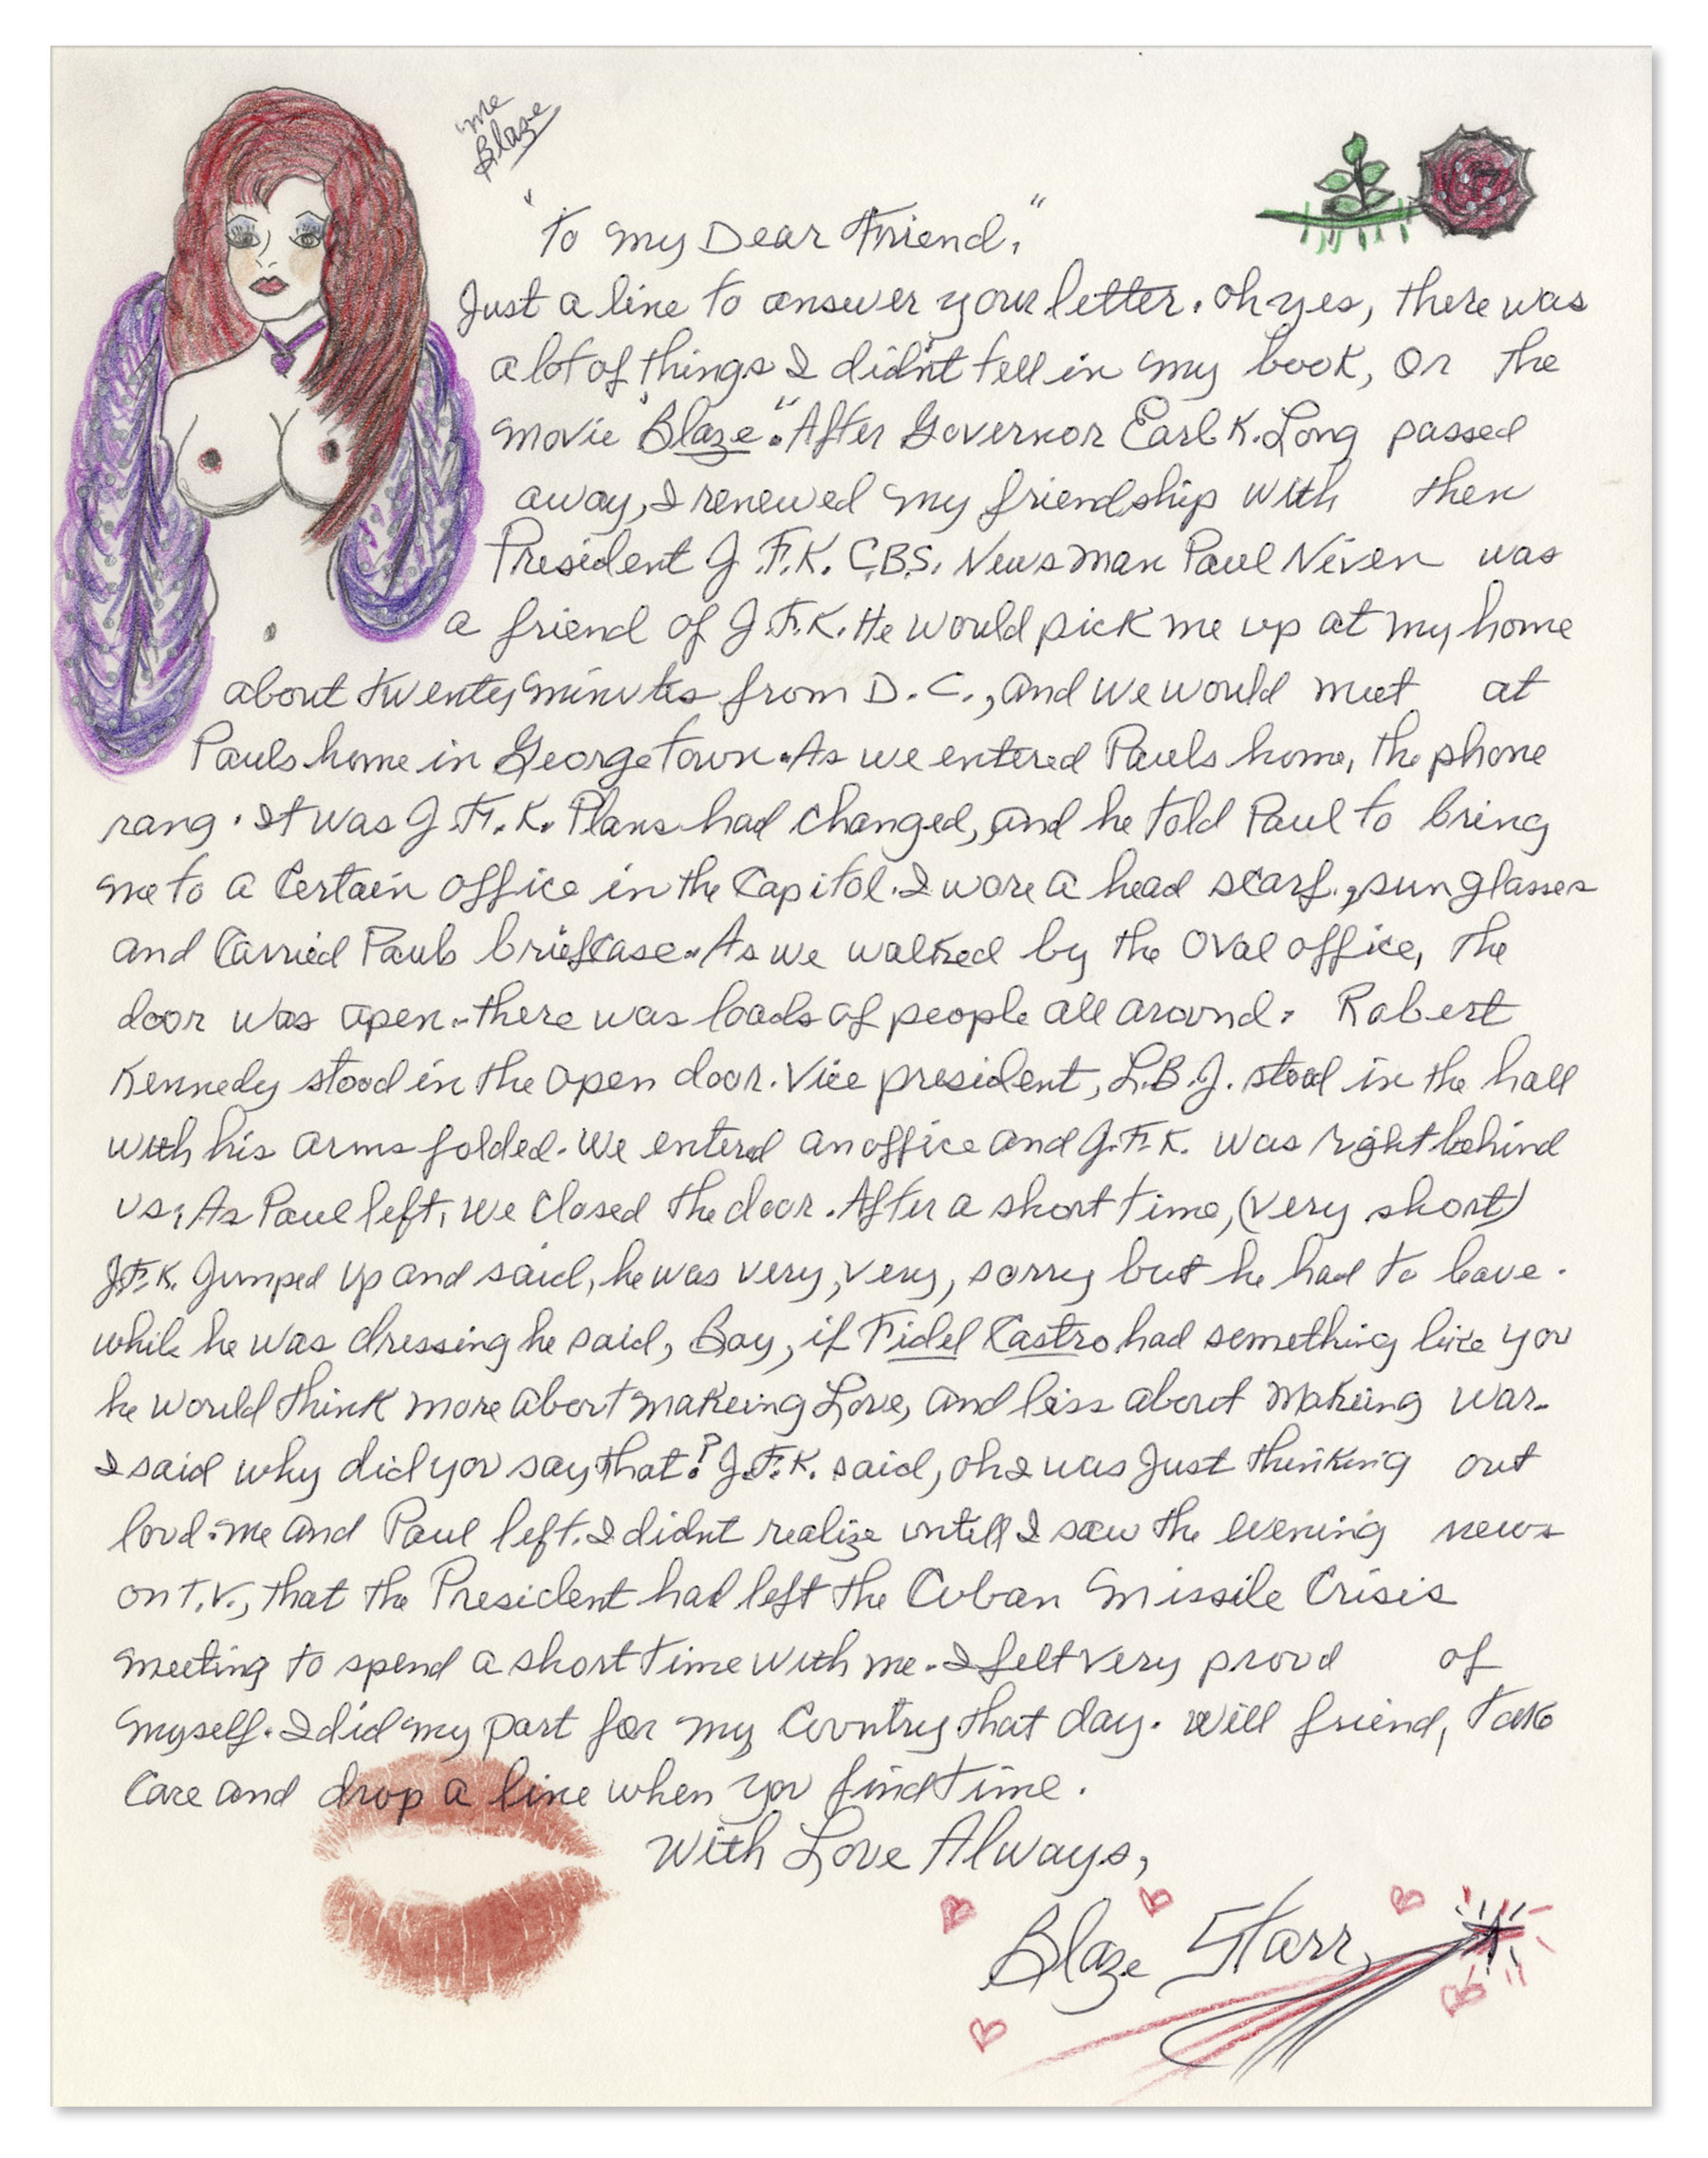 "me
Blaze
"To my Dear Friend,"
Just a line to answer your letter. Oh yes, there was
a lot of things I didn't tell in my book, or the
movie "Blaze". After Governor Earl K. Long passed
away, I renewed my friendship with then
President J.F.K. C.B.S. News man Paul Niven was
a friend of J.F.K. He would pick me up at my home
about twenty minutes from D.C., and we would meet at
Pauls home in Georgetown. As we entered Pauls home, the phone
rang. It was J.F.K. Plans had changed, and he told Paul to bring
me to a certain office in the Capitol. I wore a head scarf, sunglasses
and carried Pauls briefcase. As we walked by the Oval office, the
door was open. there was loads of people all around. Robert
Kennedy stood in the open door. Vice president, L.B.J. stood in the hall
with his arms folded. We entered an office and J.F.K. was right behind
us. As Paul left, we closed the door. After a short time, (very short)
J.F.K. Jumped up and said, he was very, very, sorry but he had to leave.
while he was dressing he said, Boy, if Fidel Castro had something like you
he would think more about makeing Love, and less about Makeing war.
I said why did you say that? J.F.K. said, oh I was Just thinking out
loud. me and Paul left. I didnt realize untill I saw the evening news
on T.V., that the President had left the Cuban Missile Crisis
meeting to spend a short time with me. I felt very proud of
myself. I did my part for my Country that day. Well friend, take
care and drop a line when you find time.
With Love Always,
Blaze Starr